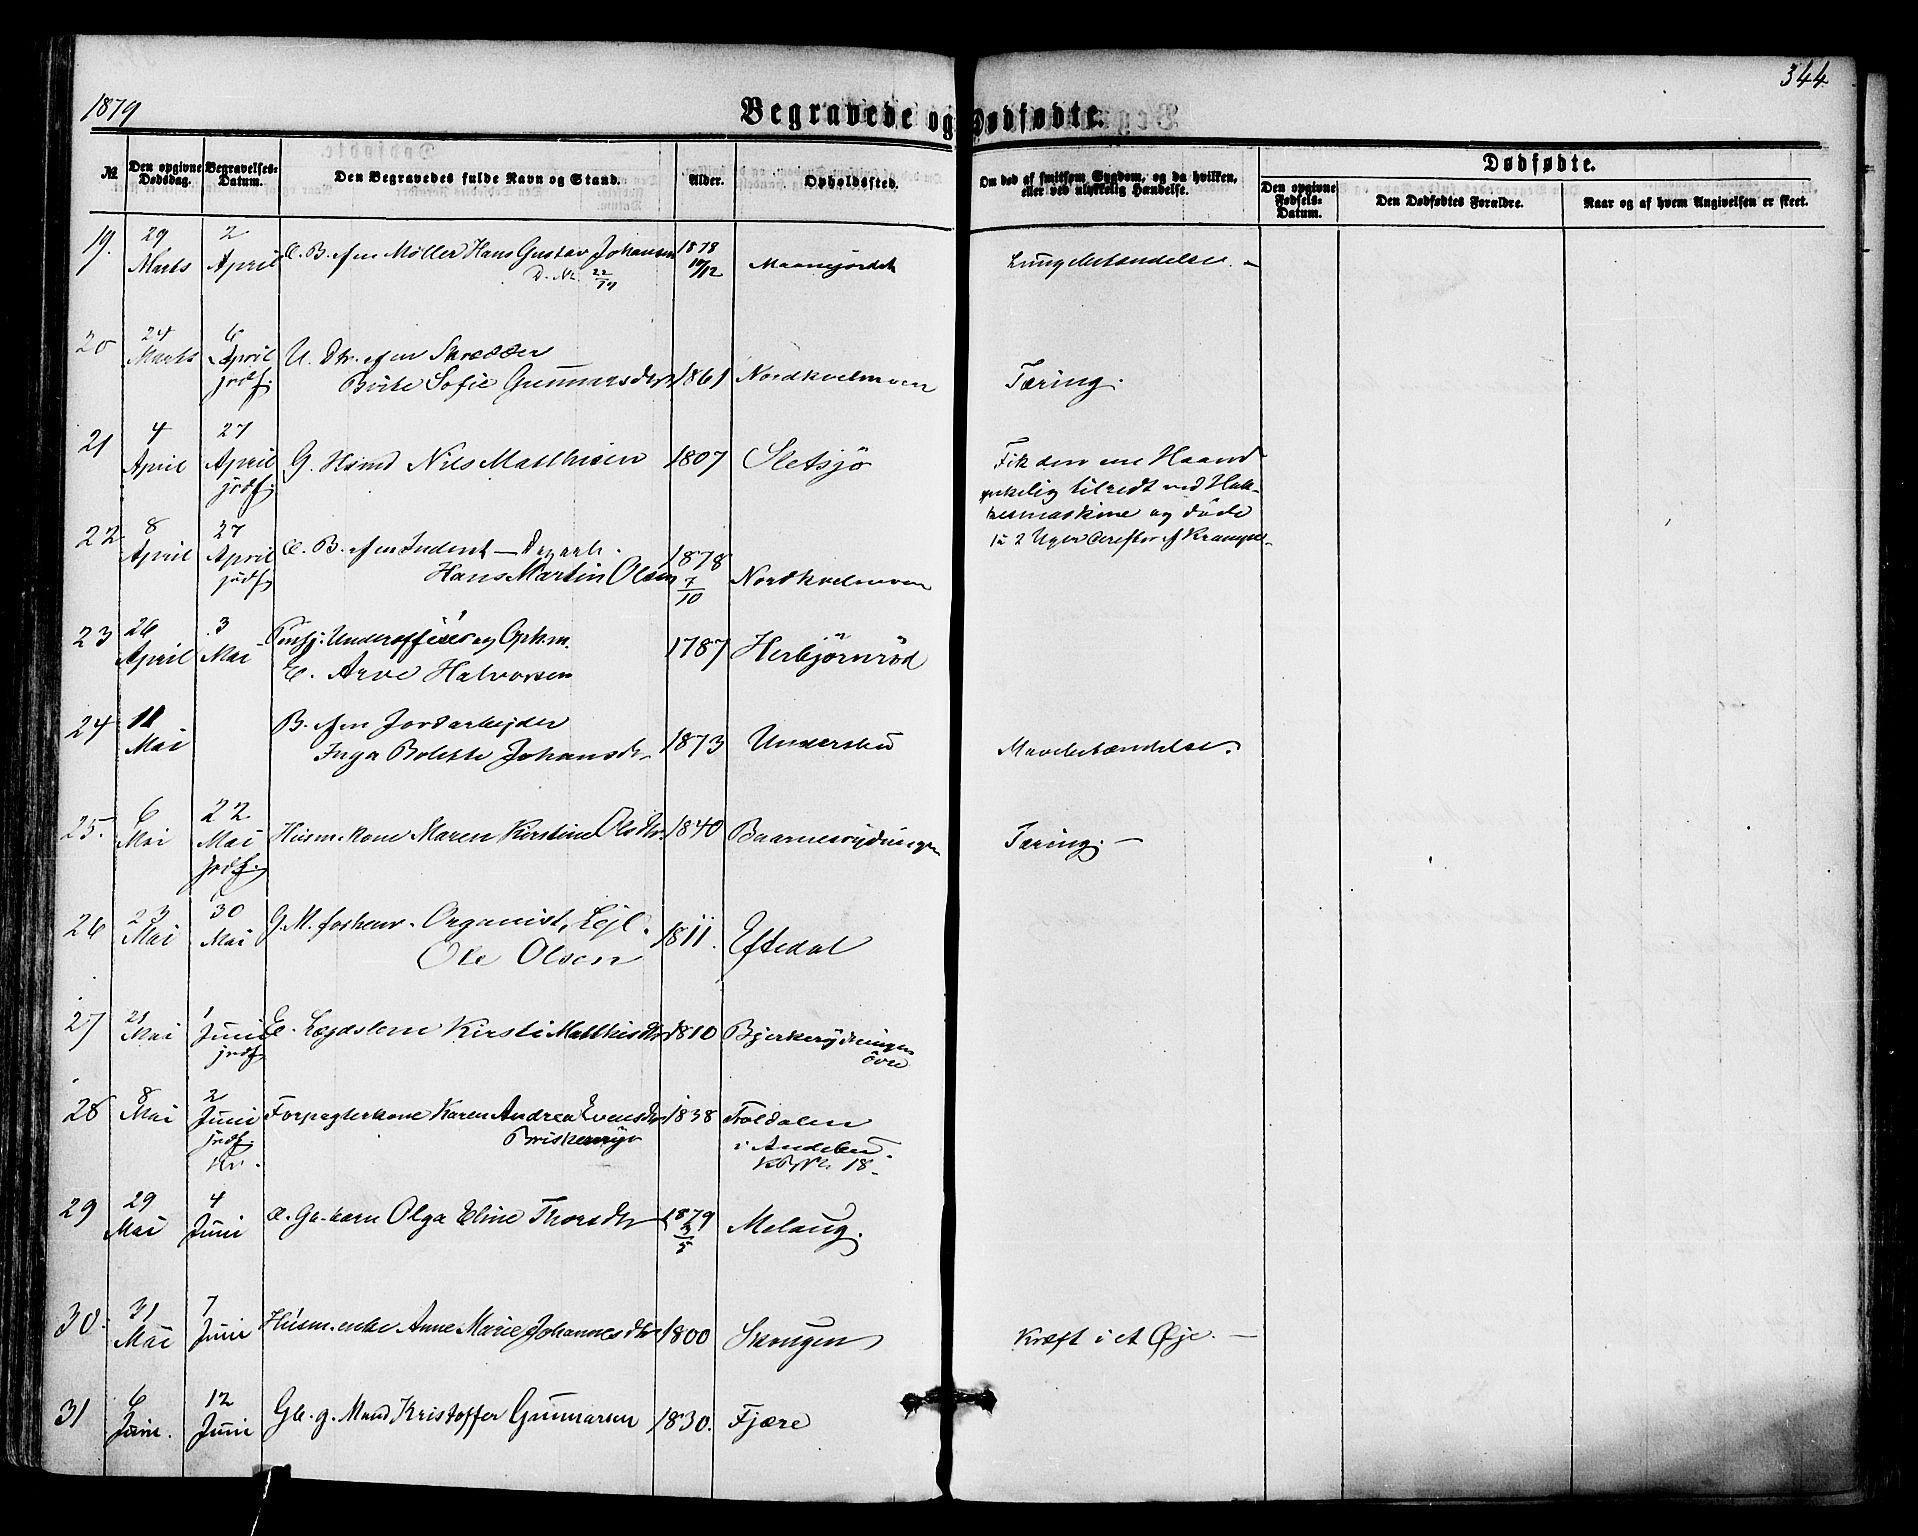 1879
344
Begravede og Dødfødte.
№
Den opgivne Dødsdag.
Begravelses-Datum.
Den Begravedes fulde Navn og Stand.
Alder.
Opholdssted.
Om død af smitsom Sygdom, og da hvilken, eller ved ulykkelig Hændelse.
Dødfødte.
Den opgivne Fødsels-Datum.
Den Dødfødtes Forældre.
Naar og af hvem Angivelsen er skeet.
19. 29 Marts 2 April Møller Hans Gustav Johansen 1878
Lungebetændelse.
20 24 Marts 6 April jordf. U. Dtr. af en Skrædder
Sofie Gunnarsdtr 1861 Nordkvelmoen Tæring.
21 4 April 27 April jordf. G. Husmd Nils Matthisen 1807 Sletsjø
Fik den ene Haand
ynkelig tilredt ved Hak-
kesmaskine og døde
1 à 2 Uger derefter af Krampe
22 8 April 27 April jordf. E. B. af en Inderst
Hans Martin Olsen 1878 7/10 Nordkvelmoen
23 26 April 3 Mai Underofficer og
E. Arve Halvorsen 1787 Herbjørnrød
24 11 Mai B. af en Jordarbejder
Inga Bolette Johansdr 1873 Mavebetændelse.
25. 6 Mai 22 Mai jordf. Husm. kone Maren Kirstine Olsdtr. 1840 Baarnesrydningen Tæring.
26 23 Mai 30 Mai G. M. forhenv. Organist, Lejl.
Ole Olsen 1811. Eftedal
27 21 Mai 1 Juni jordf. E. Lægdslem Kirsti Matthisdtr 1810 Bjerkerydningen
övre
28 8 Mai 2 Juni jordf. Forpagterkone Karen Andrea Evensdtr 1838 Troldalen
i Andebu.
18
29 29 Mai 4 Juni Olga Eline Thorsdtr 1879 Melaug.
30. 31 Mai 7 Juni Husm. enke Anne Marie Johannesdtr 1800 Skougen Kræft i et Øje.
31 6 Juni. 12 Juni Gb. g. Mand Kristoffer Gunnarsen 1830. Fjære